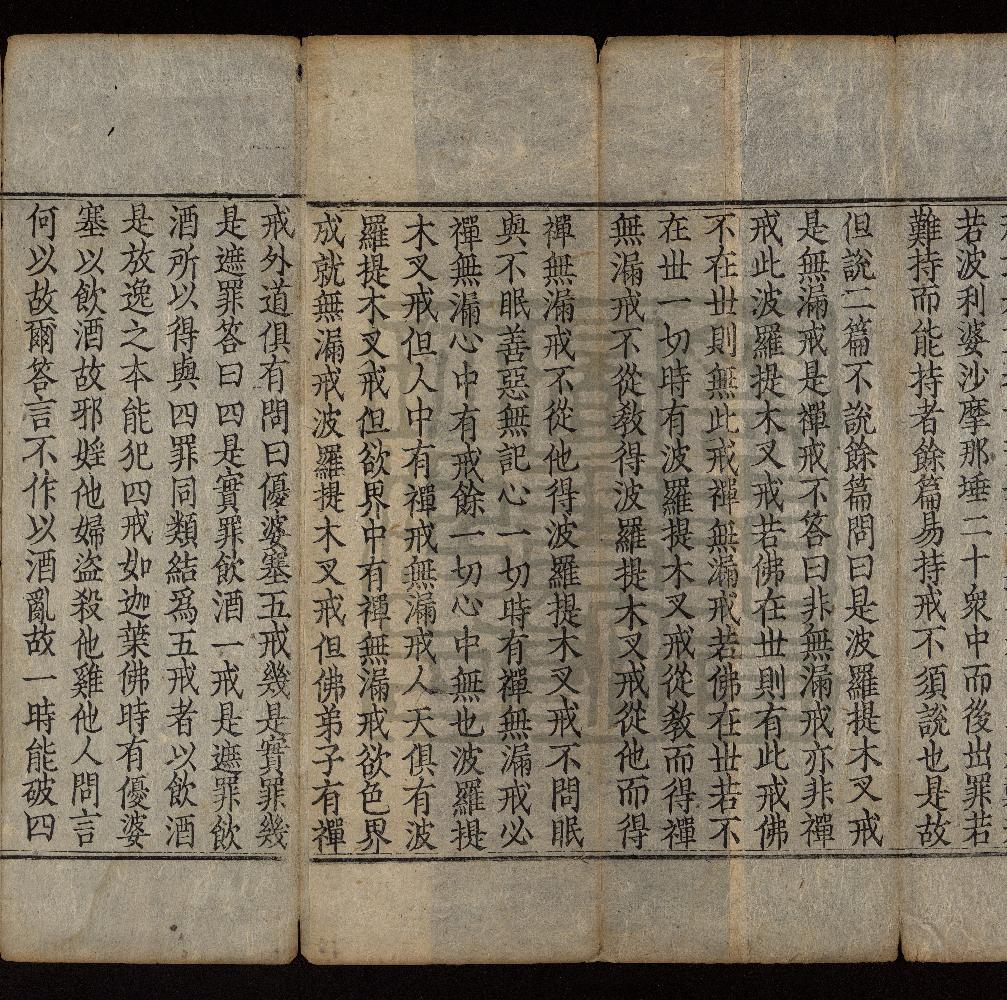 若波利婆沙摩那埵二十衆中而後出罪若
難持而能持者餘篇易持戒不須說也是故
但說二篇不說餘篇問曰是波羅提木叉戒
是無漏戒是禪戒不答曰非無漏戒亦非禪
戒此波羅提木叉戒若佛在世則有此戒佛
不在世則無此戒禪無漏戒若佛在世若不
在世一切時有波羅提木叉戒從教而得禪
無漏戒不從教得波羅提木叉戒從他而得
禪無漏戒不從他得波羅提木叉戒不問眠
與不眠善惡無記心一切時有禪無漏戒必
禪無漏心中有戒餘一切心中無也波羅提
木叉戒但人中有禪戒無漏戒人天俱有波
羅提木叉戒但欲界中有禪無漏戒欲色界
成就無漏戒波羅提木叉戒但佛弟子有禪
戒外道俱有問曰優婆塞五戒幾是實罪幾
是遮罪答曰四是實罪飲酒一戒是遮罪飲
酒所以得與四罪同類結爲五戒者以飲酒
是放逸之本能犯四戒如迦葉佛時有優婆
塞以飲酒故邪婬他婦盜殺他雞他人問言
何以故爾答言不作以酒亂故一時能破四